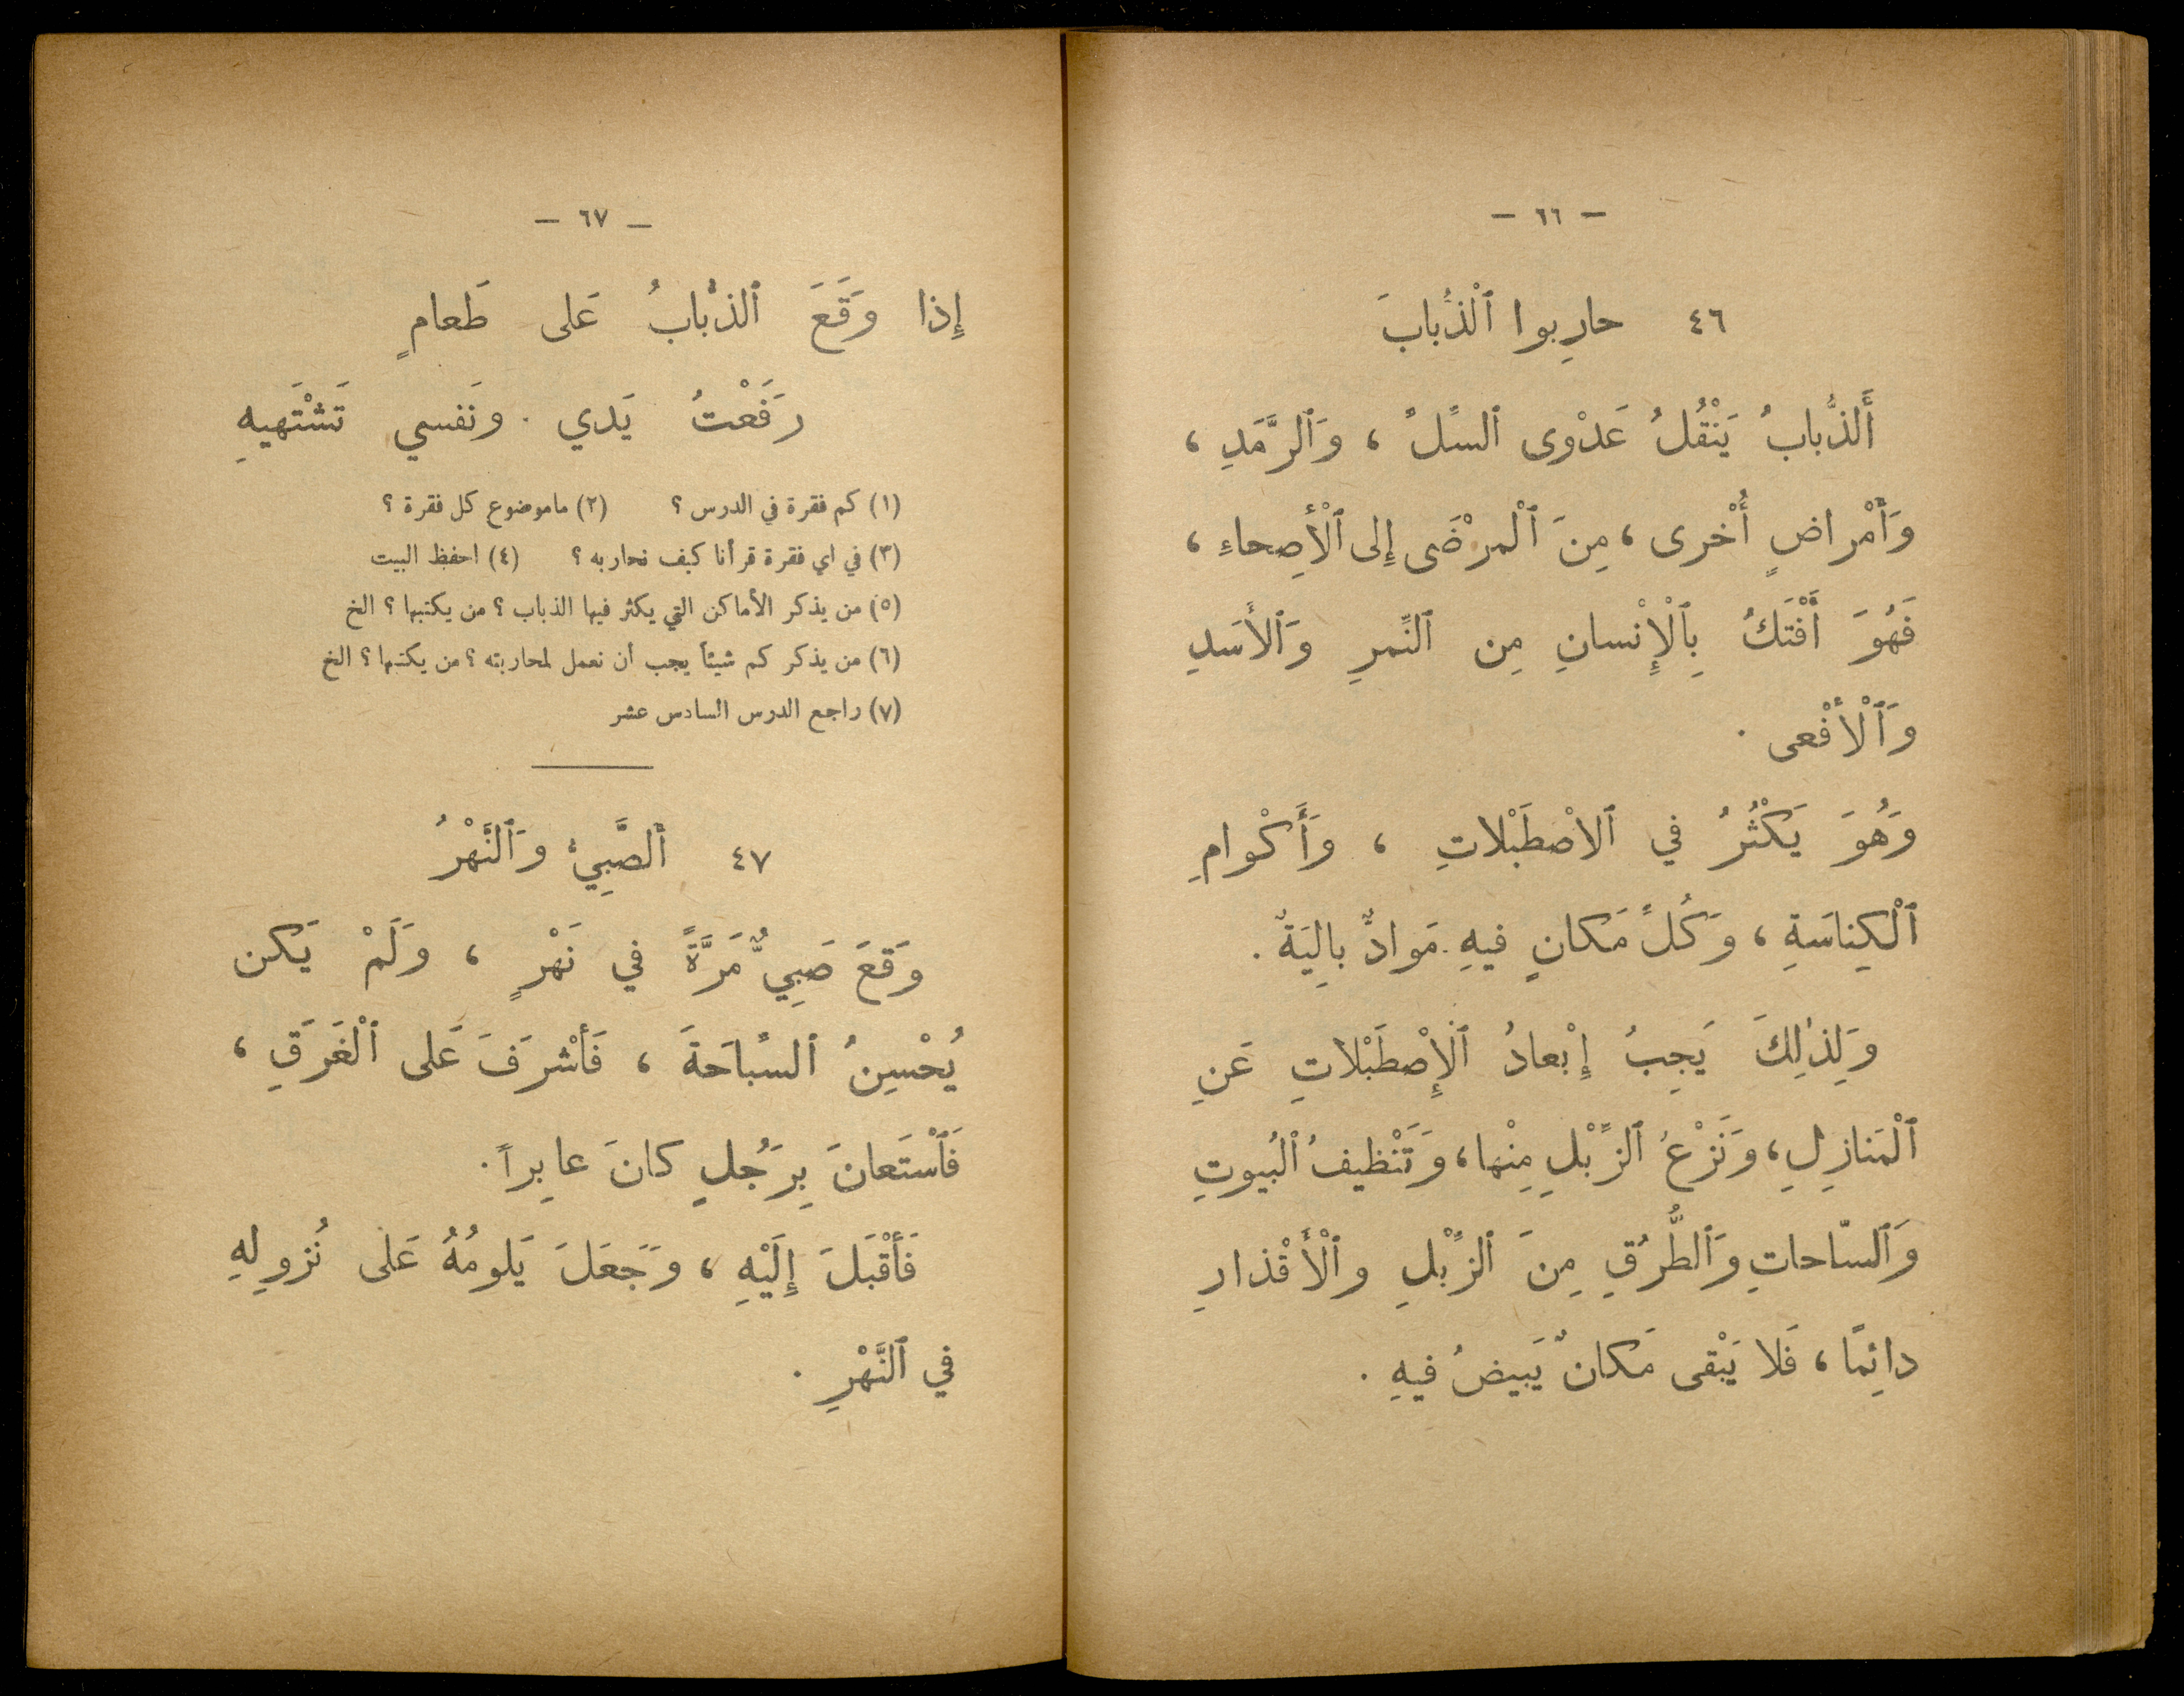 — ٦٦ —
٤٦ حارِبوا ٱلْذُّبابَ
أَلذُّبابُ يَنْقُلُ عَدْوى ٱلسِّلِّ ، وَٱلرَّمَدِ ،
وَأَمْراضٍ أُخْرى ، مِنَ ٱلْمرْضَى إِلى ٱلْأَصِحاءِ ،
فَهُوَ أَفْتَكُ بِٱلْإِنْسانِ مِن ٱلنِّمرِ وَٱلأَسَدِ
وَٱلْأَفْعى .
وَهُوَ يَكْثُرُ في ٱلاْصْطَبْلاتِ ، وَأَكْوامِ
ٱلْكِناسَةِ ، وَكُلِّ مَكانٍ فيهِ مَوادٌّ بالِيَةٌ .
وَلِذٰلِكَ يَجِبُ إِبْعادُ ٱلْإِصْطَبْلاتِ عَنِ
ٱلْمَنازِلِ ، وَنَزْعُ ٱلزِّبْلِ مِنْها ، وَتَنْظيفُ ٱلْبُيوتِ
وَٱلسّاحاتِ وَٱلطُّرُقِ مِنَ ٱلزِّبْلِ وٱلْأَقْذارِ
دائِمًا ، فَلا يَبْقى مَكانٌ يَبيضُ فيهِ .
— ٦٧ —
إِذا وَقَعَ ٱلذُّبابُ عَلى طَعامٍ
رَفَعْتُ يَدي . وَنَفسي تَشْتَهيهِ
(١) كم فقرة في الدرس ؟ (٢) ماموضوع كل فقرة ؟
(٣) في اي فقرة قرأنا كيف نحاربه ؟ (٤) احفظ البيت
(٥) من يذكر الأماكن التي يكثر فيها الذباب ؟ من يكتبها ؟ الخ
(٦) من يذكر كم شيئاً يجب أن نعمل لمحاربته ؟ من يكتبها ؟ الخ
(٧) راجع الدرس السادس عشر
٤٧ أَلصَّبِيُّ وَٱلنَّهْرُ
وَقَعَ صَبِيٌّ مَرَّةً في نَهْرٍ ، وَلَمْ يَكن
يُحْسِنُ ٱلسِّباحَةَ ، فَأَشْرَفَ عَلى ٱلْغَرَقِ ،
فَٱسْتَعانَ بِرَجُلٍ كانَ عابِراً .
فَأَقْبَلَ إِلَيْهِ ، وَجَعَلَ يَلومُهُ عَلى نُزولِهِ
في ٱلنَّهْرِ .